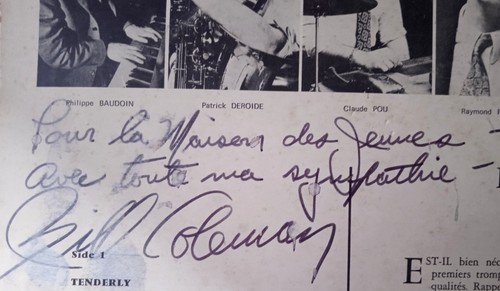 Philippe BAUDOIN Patrick DEROIDE Claude POU Raymond F
Pour la Maison des Jeunes
avec toute ma sympathie —
Bill Coleman
Side 1
TENDERLY
EST-IL bien néc
premiers tromp
qualités. Rappe